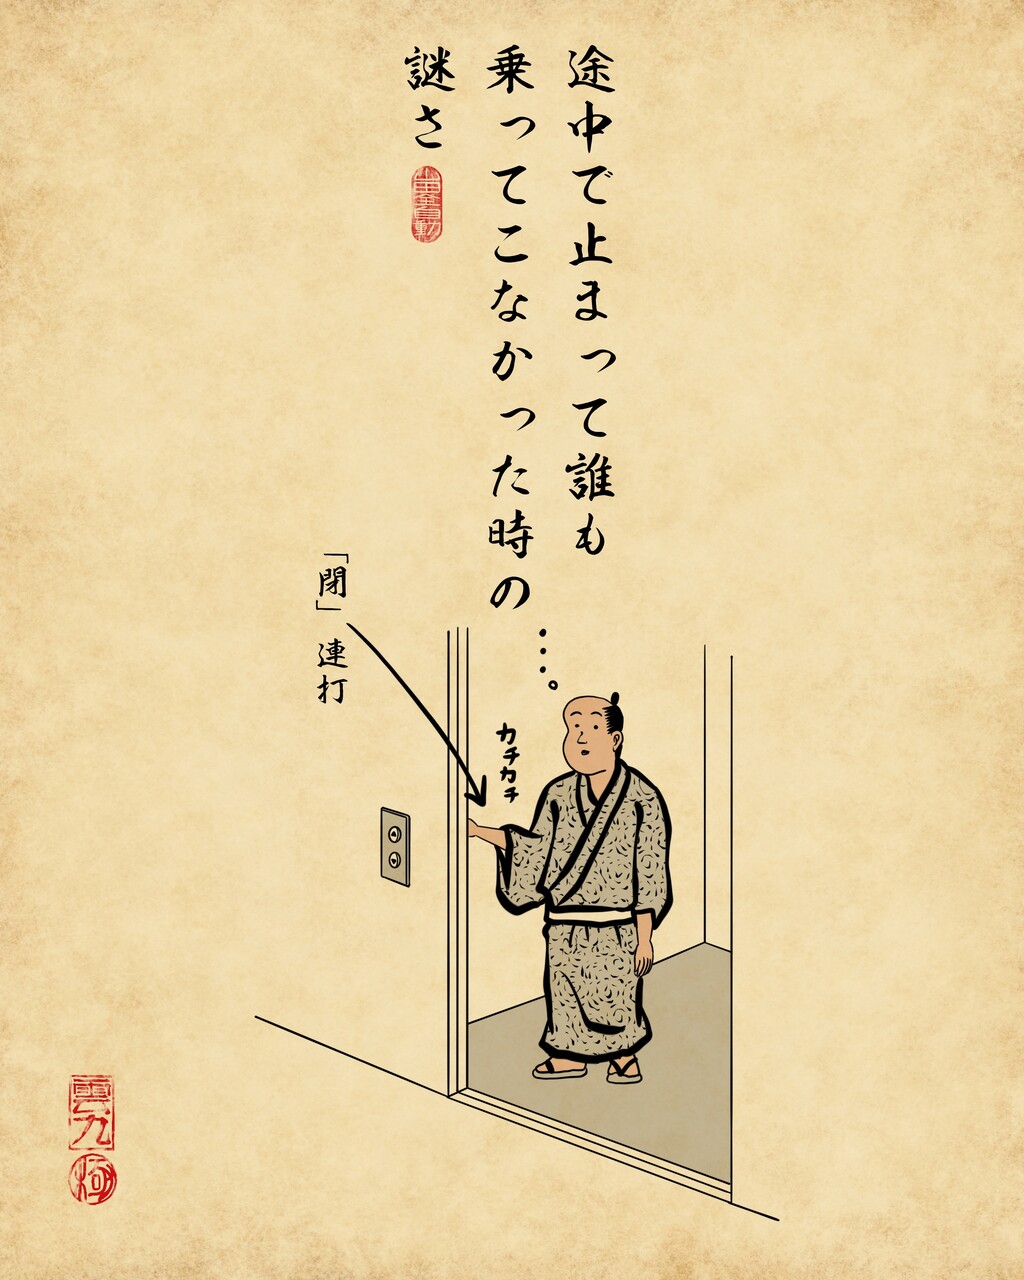 途中で止まって誰も
乗ってこなかった時の
謎さ
「閉」連打
カチカチ